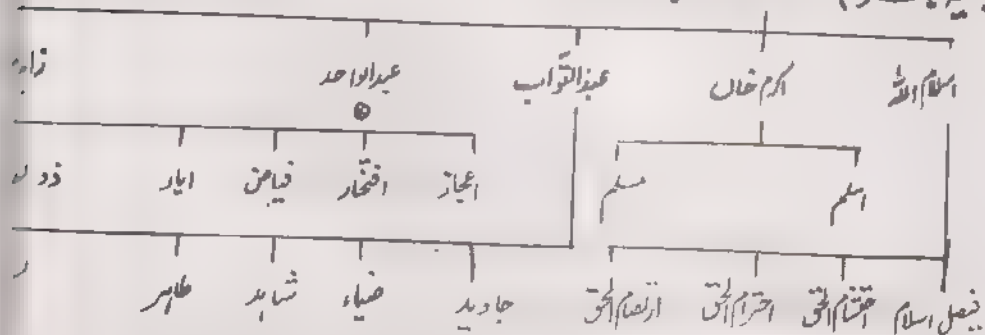 اسلام اللہ اکرم خاں عبدالتواب عبدالواحد
اسلم مسلم اعجاز افتخار فیاض ایاز
فیصل اسلام احتشام الحق احترام الحق ارتضام الحق جاوید ضیاء شاہد طاہر